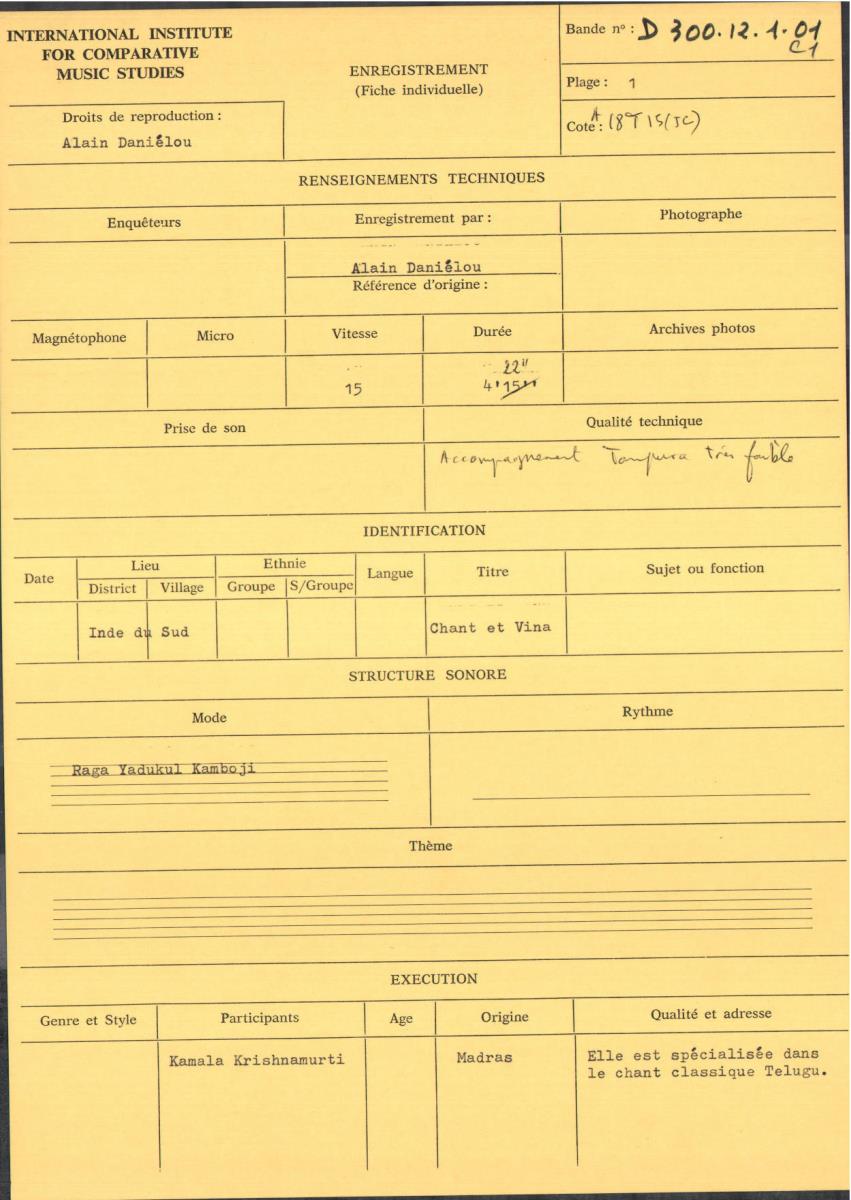 INTERNATIONAL INSTITUTE
FOR COMPARATIVE
MUSIC STUDIES
Droits de reproduction :
Alain Daniélou
ENREGISTREMENT
(Fiche individuelle)
Bande nº : D 300.12.1.01
C1
Plage : 1
Cote : A 18T15(JC)
RENSEIGNEMENTS TECHNIQUES
Enquêteurs
Enregistrement par :
Photographe
Alain Daniélou
Référence d'origine :
Magnétophone
Micro
Vitesse
Durée
Archives photos
15
22"
4'15"
Prise de son
Qualité technique
Accompagnement Tampura très faible
IDENTIFICATION
Date
Lieu
Ethnie
Langue
Titre
Sujet ou fonction
District
Village
Groupe
S/Groupe
Inde du Sud
Chant et Vina
STRUCTURE SONORE
Mode
Rythme
Raga Yadukul Kamboji
Thème
EXECUTION
Genre et Style
Participants
Age
Origine
Qualité et adresse
Kamala Krishnamurti
Madras
Elle est spécialisée dans
le chant classique Telugu.